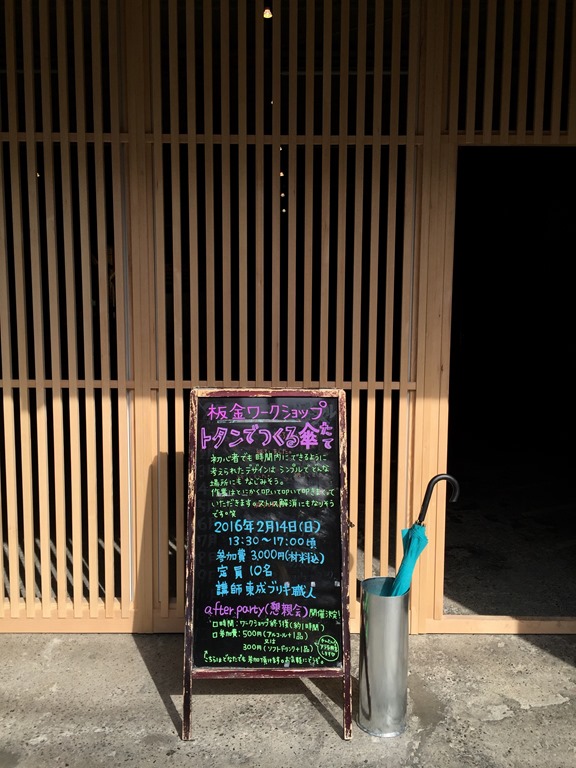 板金ワークショップ
トタンでつくる傘たて
初心者でも時間内にできるように
考えられたデザインはシンプルでどんな
場所にもなじみそう。
作業はとにかく叩いて叩いて叩きまくって
いただきます。ストレス解消にもなりそう
です。笑
2016年2月14日(日)
13:30～17:00頃
参加費 3,000円(材料込)
定員 10名
講師 東成ブリキ職人
after party(懇親会)開催決定!
日時間:ワークショップ終了後(約1時間)
参加費:500円(アルコール+1品)
又は
300円(ソフトドリンク+1品)
こちらはどなたでも参加頂けます。お気軽にどうぞ。